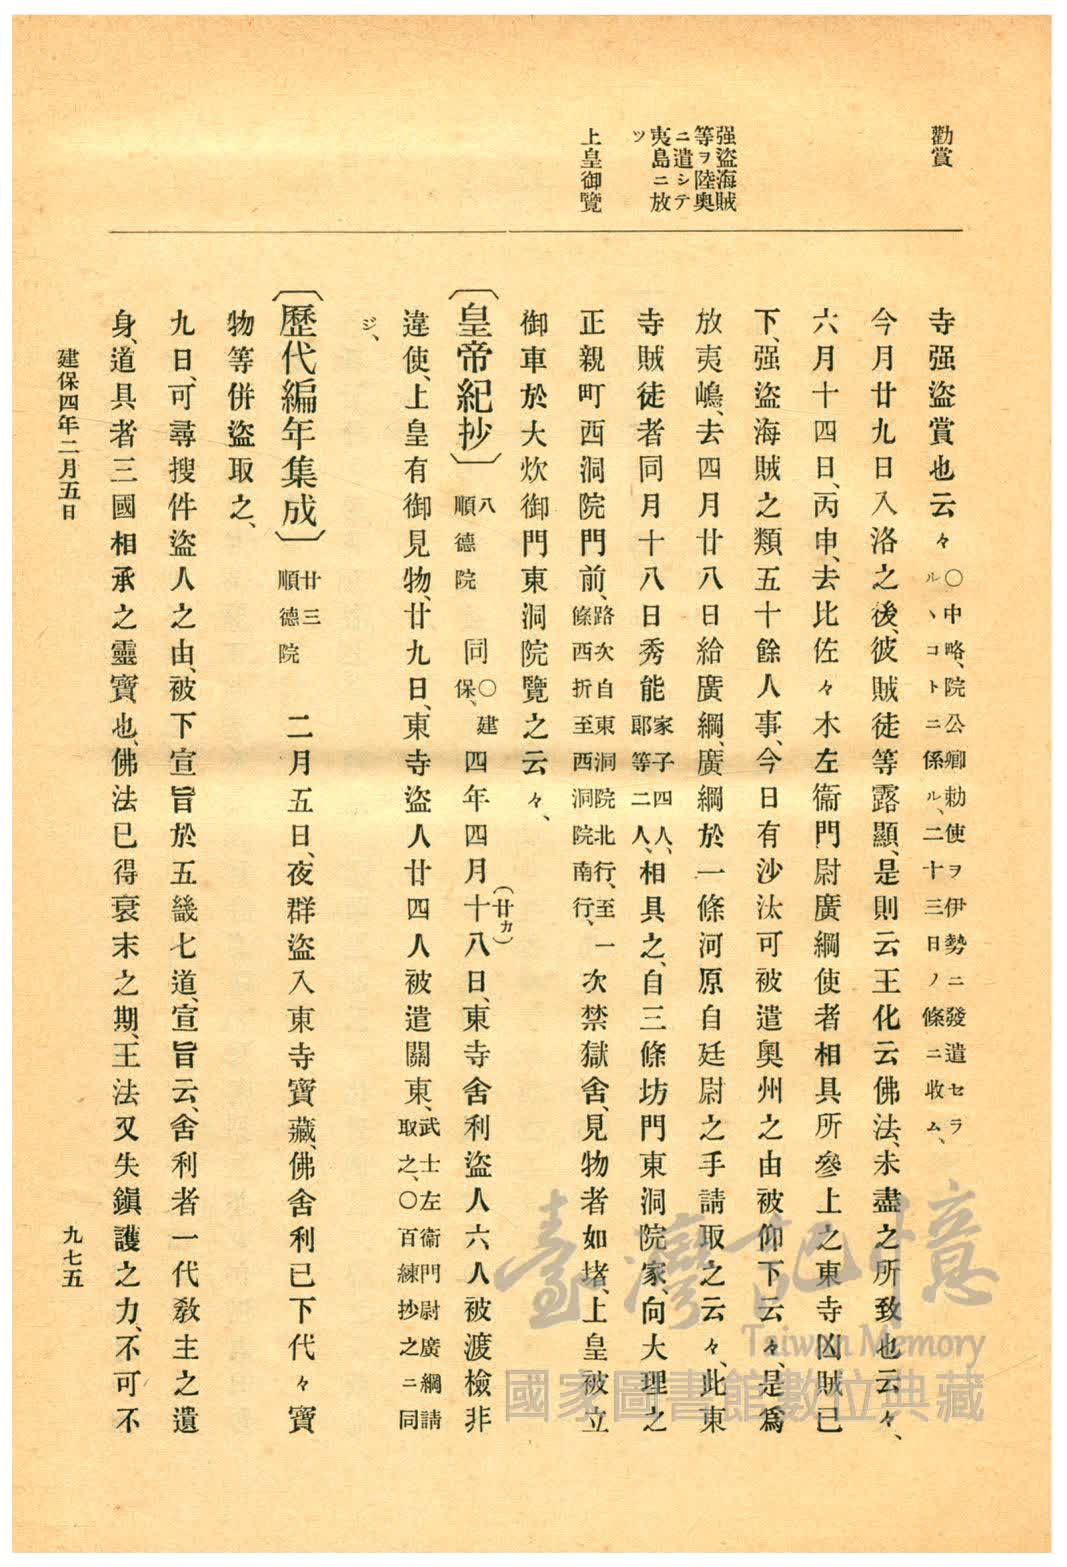 勸賞
强盜海賊
等ヲ陸奧
ニ遣シテ
夷島ニ放
ツ
上皇御覽
寺强盜賞也云々、〇中略、院公卿勅使ヲ伊勢ニ發遣セラルヽコトニ係ル、二十三日ノ條ニ收ム、
今月廿九日入洛之後、彼賊徒等露顯、是則云王化云佛法、未盡之所致也云々、
六月十四日、丙申、去比佐々木左衞門尉廣綱使者相具所參上之東寺凶賊已
下、强盜海賊之類五十餘人事、今日有沙汰可被遣奧州之由被仰下云々、是爲
放夷嶋、去四月廿八日給廣綱、廣綱於一條河原自廷尉之手請取之云々、此東
寺賊徒者同月十八日秀能家子四人、郞等二人、相具之、自三條坊門東洞院家、向大理之
正親町西洞院門前、路次自東洞院北行、至一條西折至西洞院南行、次禁獄舍、見物者如堵、上皇被立
御車於大炊御門東洞院覽之云々、
〔皇帝紀抄〕八順德院 同〇建保、四年四月十八日、(廿カ)東寺舍利盜人六人被渡檢非
違使、上皇有御見物、廿九日、東寺盜人廿四人被遣關東、武士左衞門尉廣綱請取之、〇百練抄之ニ同
ジ、
〔歷代編年集成〕廿三順德院 二月五日、夜群盜入東寺寶藏、佛舍利已下代々寶
物等併盜取之、
九日、可尋搜件盜人之由、被下宣旨於五畿七道、宣旨云、舍利者一代敎主之遺
身、道具者三國相承之靈寶也、佛法已得衰末之期、王法又失鎭護之力、不可不
建保四年二月五日
九七五
臺灣記憶
Taiwan Memory
國家圖書館數位典藏